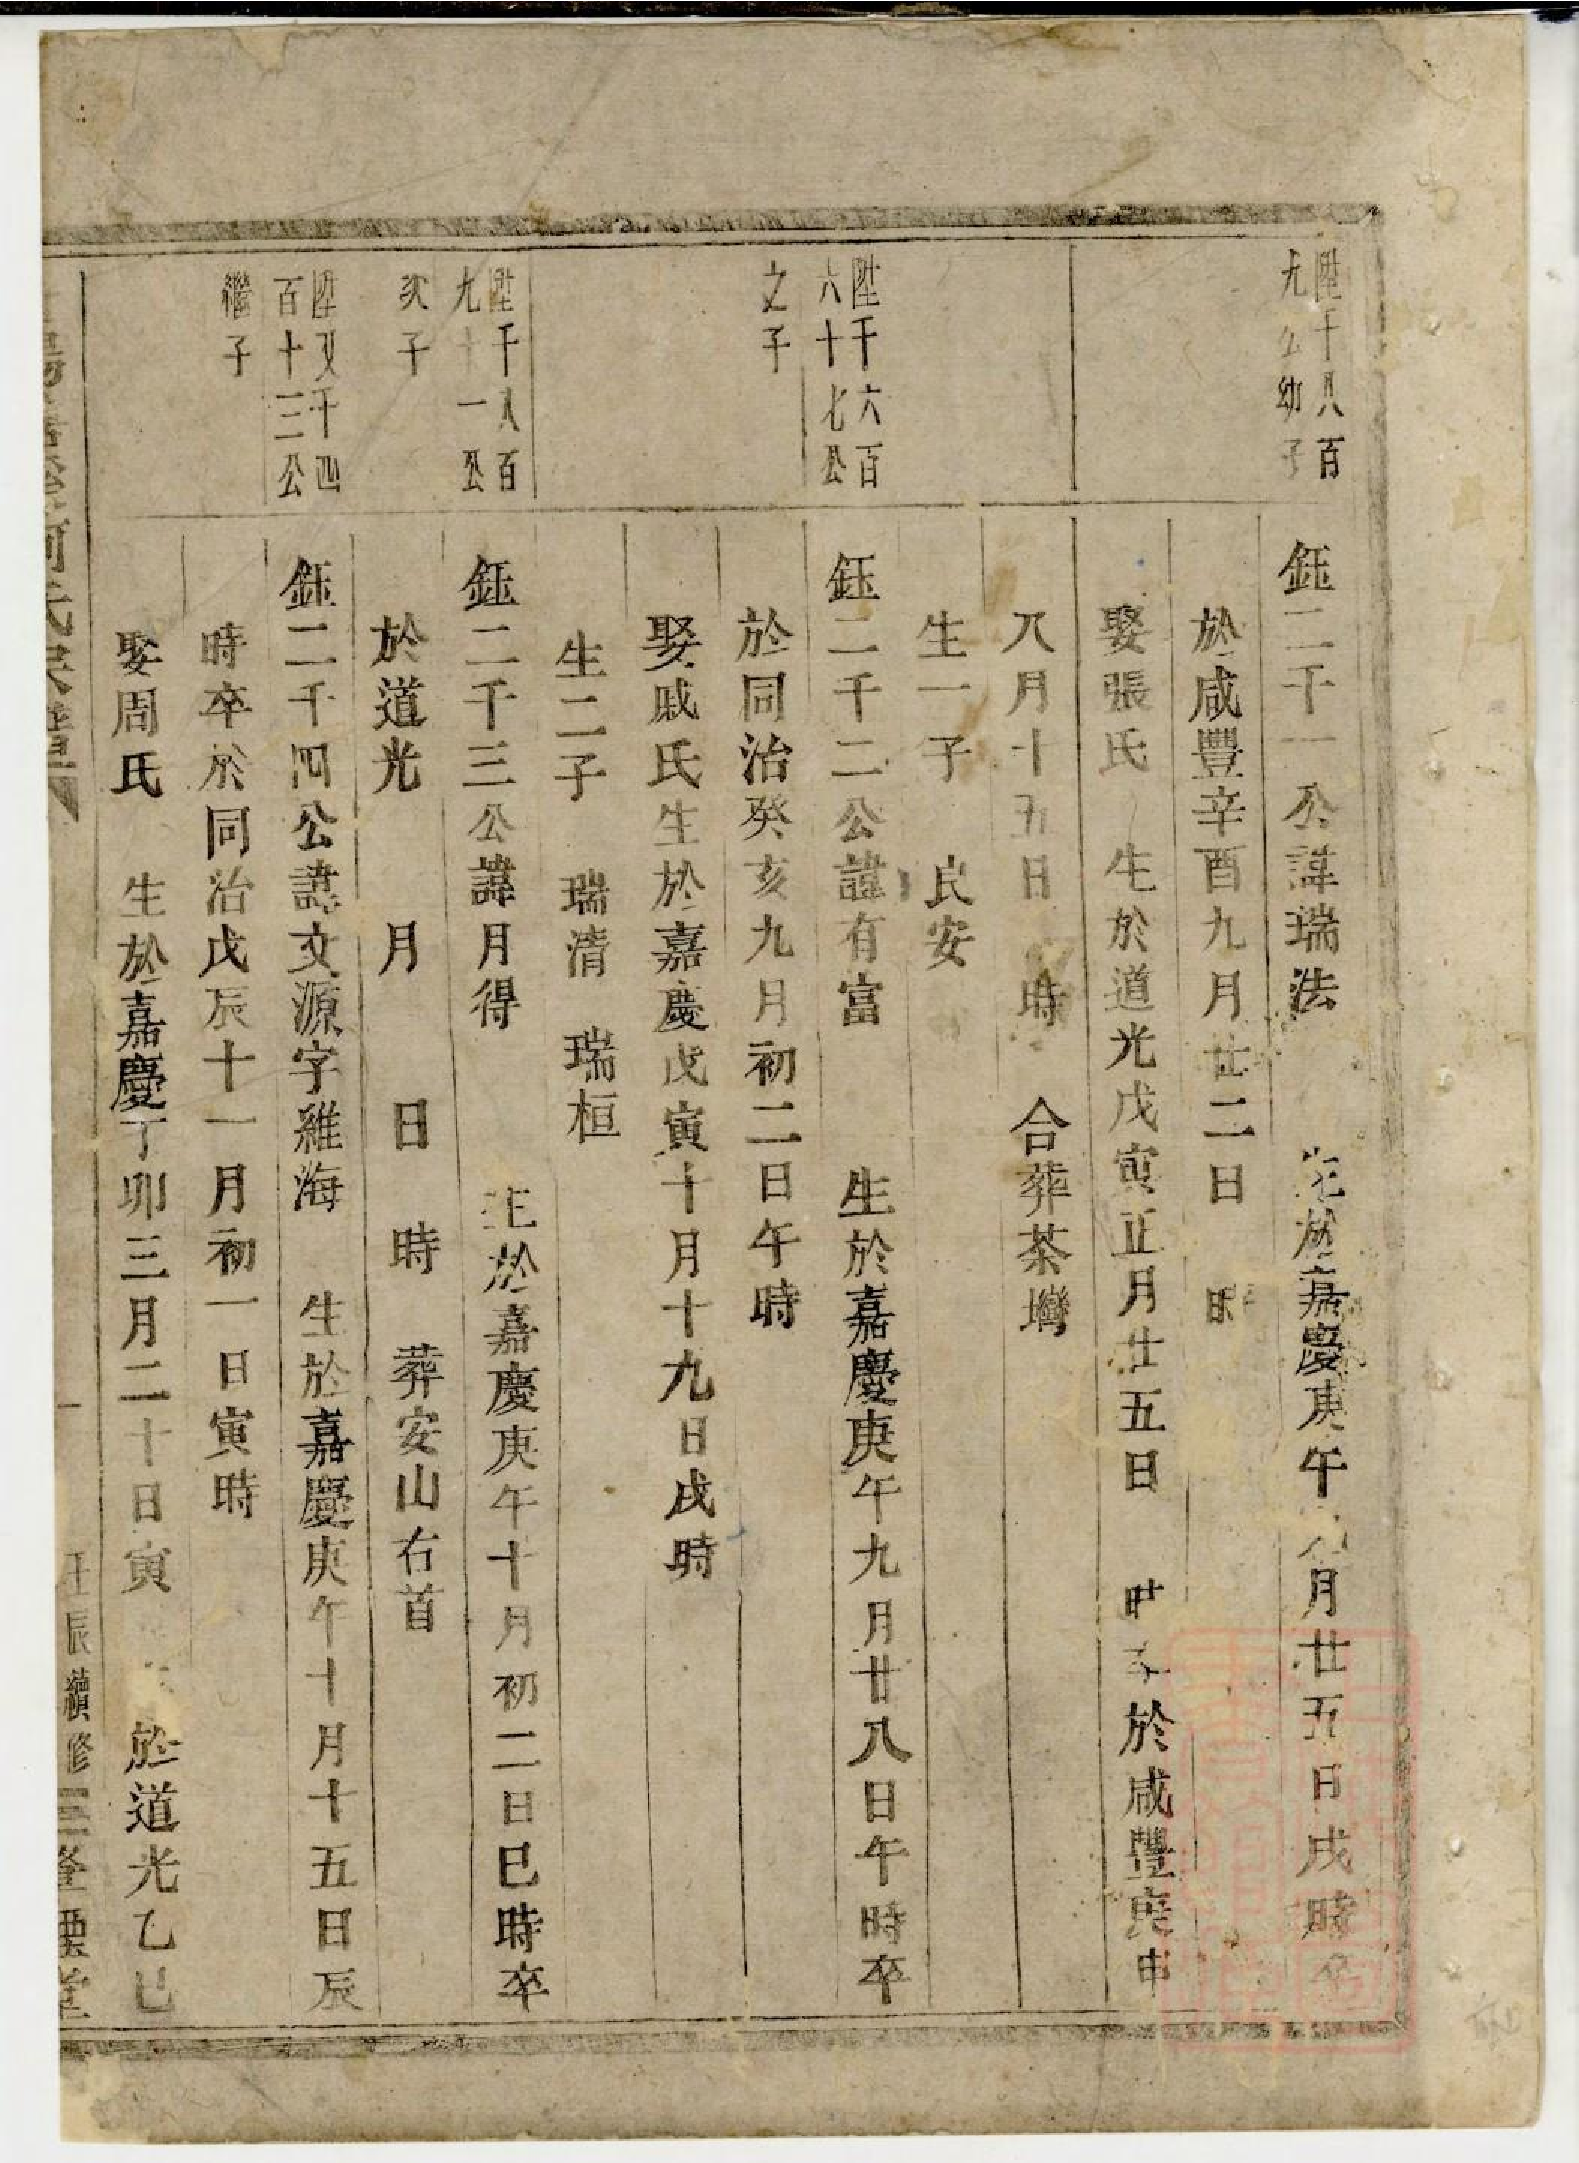 陞千八百
九公幼子
鈺二千一公諱瑞法　生於嘉慶庚午　月廿五日戌時卒
於咸豐辛酉九月廿二日　時
娶張氏　生於道光戊寅正月廿五日　時卒於咸豐庚申
八月十五日　時　合葬茶灣
生一子　良安
陞千六百
六十七公
之子
鈺二千二公諱有富　生於嘉慶庚午九月廿八日午時卒
於同治癸亥九月初二日午時
娶戚氏生於嘉慶戊寅十月十九日戌時
生二子　瑞清　瑞桓
陞千八百
九十一公
次子
鈺二千三公諱月得　生於嘉慶庚午十月初二日巳時卒
於道光　月　日　時　葬安山右首
陞又千四
百十三公
繼子
鈺二千四公諱文源字維海　生於嘉慶庚午十月十五日辰
時卒於同治戊辰十一月初一日寅時
娶周氏　生於嘉慶丁卯三月二十日寅　於道光乙巳
何氏宗譜
續修
堂